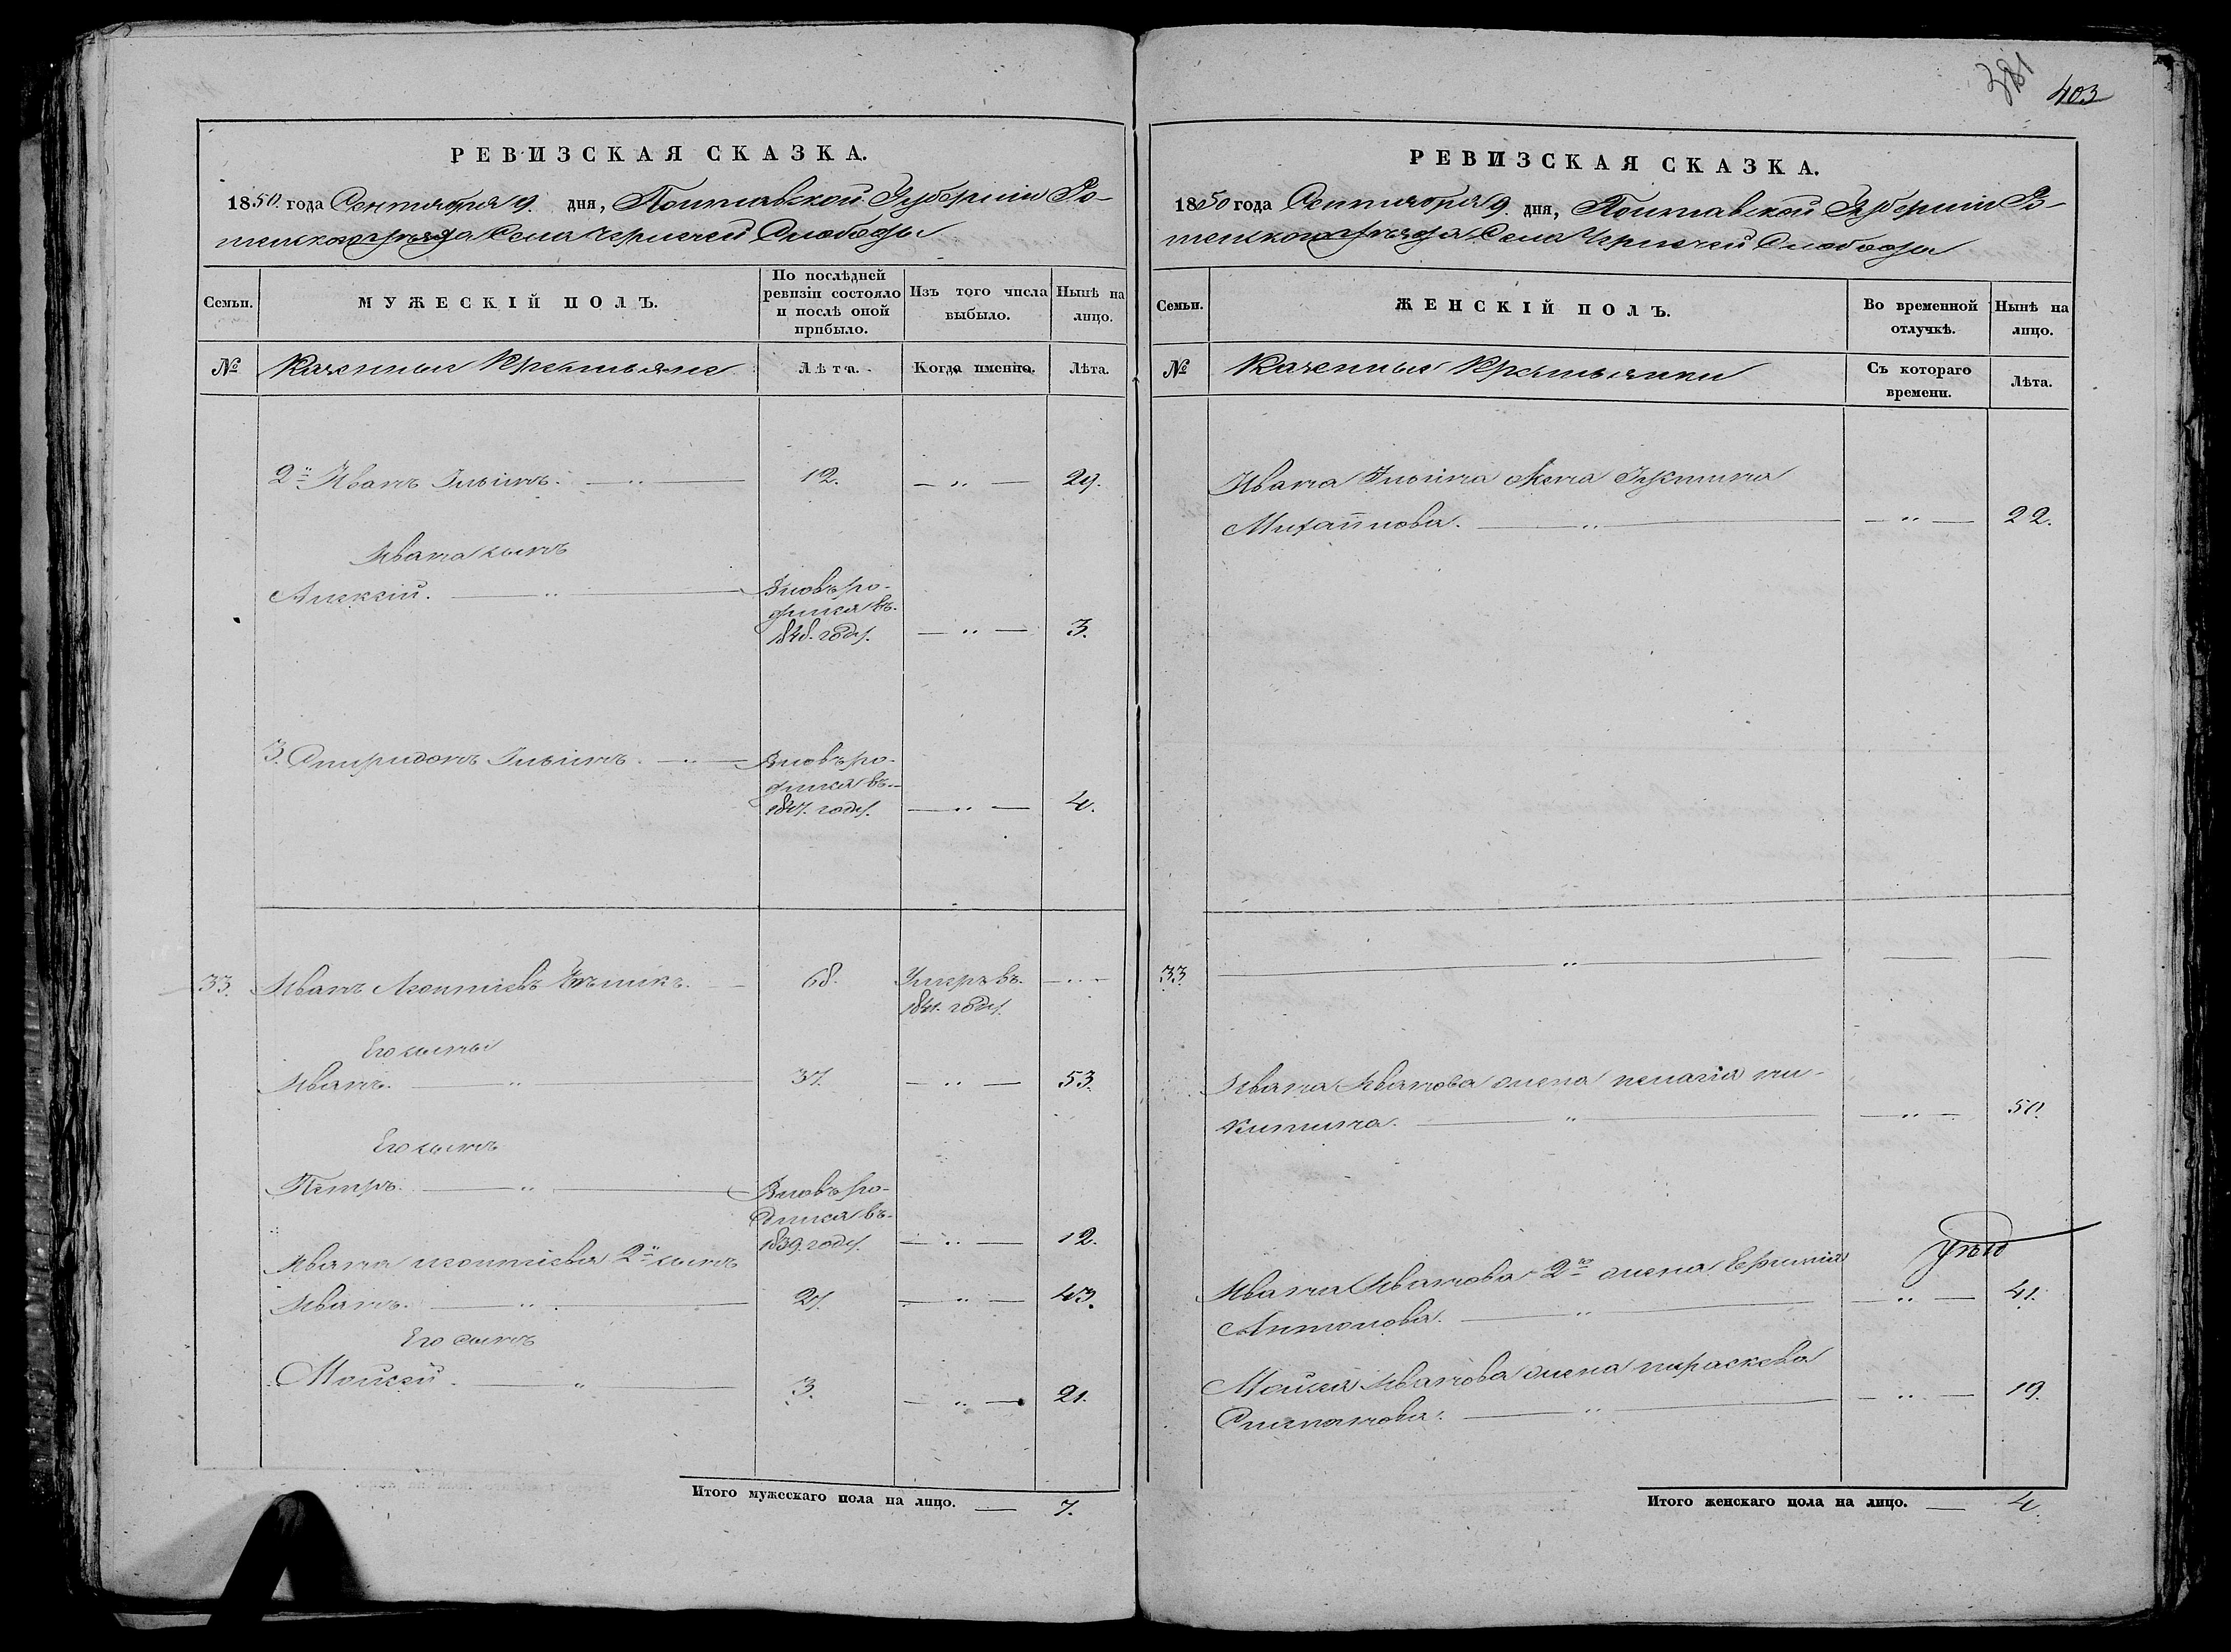 РЕВИЗСКАЯ СКАЗКА.
1850. года Сентября 9. дня, Полтавской Губерніи Ро-
менского уѣзда Села Чернечей Слободы
Семьи.
МУЖЕСКІЙ ПОЛЪ.
По послѣдней ревизіи состояло и послѣ оной прибыло.
Изъ того числа выбыло.
Нынѣ на лицо.
№
Казенныи Крестьяне
Лѣта.
Когда именно.
Лѣта.
2й Иванъ Ильинъ. — „ — 12. — „ — 29.
Ивана сынъ
Алексѣй. — „ — Вновь ро-
дился въ
1848. году. — „ — 3.
3. Спиридонъ Ильинъ. — „ — Вновь ро-
дился въ
1847. году. — „ — 4.
33. Иванъ Леонтіевъ — 68. Умеръ въ — „ —
1841. году.
Его сыны
Иванъ. — „ — 37. — „ — 53.
Его сынъ
Петръ. — „ — Вновь ро-
дился въ
1839. году. — „ — 12.
Ивана Леонтіева 2й сынъ
Иванъ. — „ — 27. — „ — 43.
Его сынъ
Мойсей. — „ — 3. — „ — 21.
Итого мужескаго пола на лицо. — 7.
381
403
РЕВИЗСКАЯ СКАЗКА.
1850 года Сентября 9. дня, Полтавской Губерніи Ро-
менского уѣзда Села Чернечей Слободы
Семьи.
ЖЕНСКІЙ ПОЛЪ.
Во временной отлучкѣ.
Нынѣ на лицо.
№
Казенные Крестьянки
Съ котораго времени.
Лѣта.
Ивана Ильина жена
Михайлова. — „ — — „ — 22.
33. — „ — — —
Ивана Иванова жена пелагія ни-
китина. — „ — — „ — 50.
Ивана Иванова 2го жена
Антонова. — „ — — „ — 41.
Мойсея Иванова жена параскева
Степанова. — „ — — „ — 19.
Итого женскаго пола на лицо. — 4.